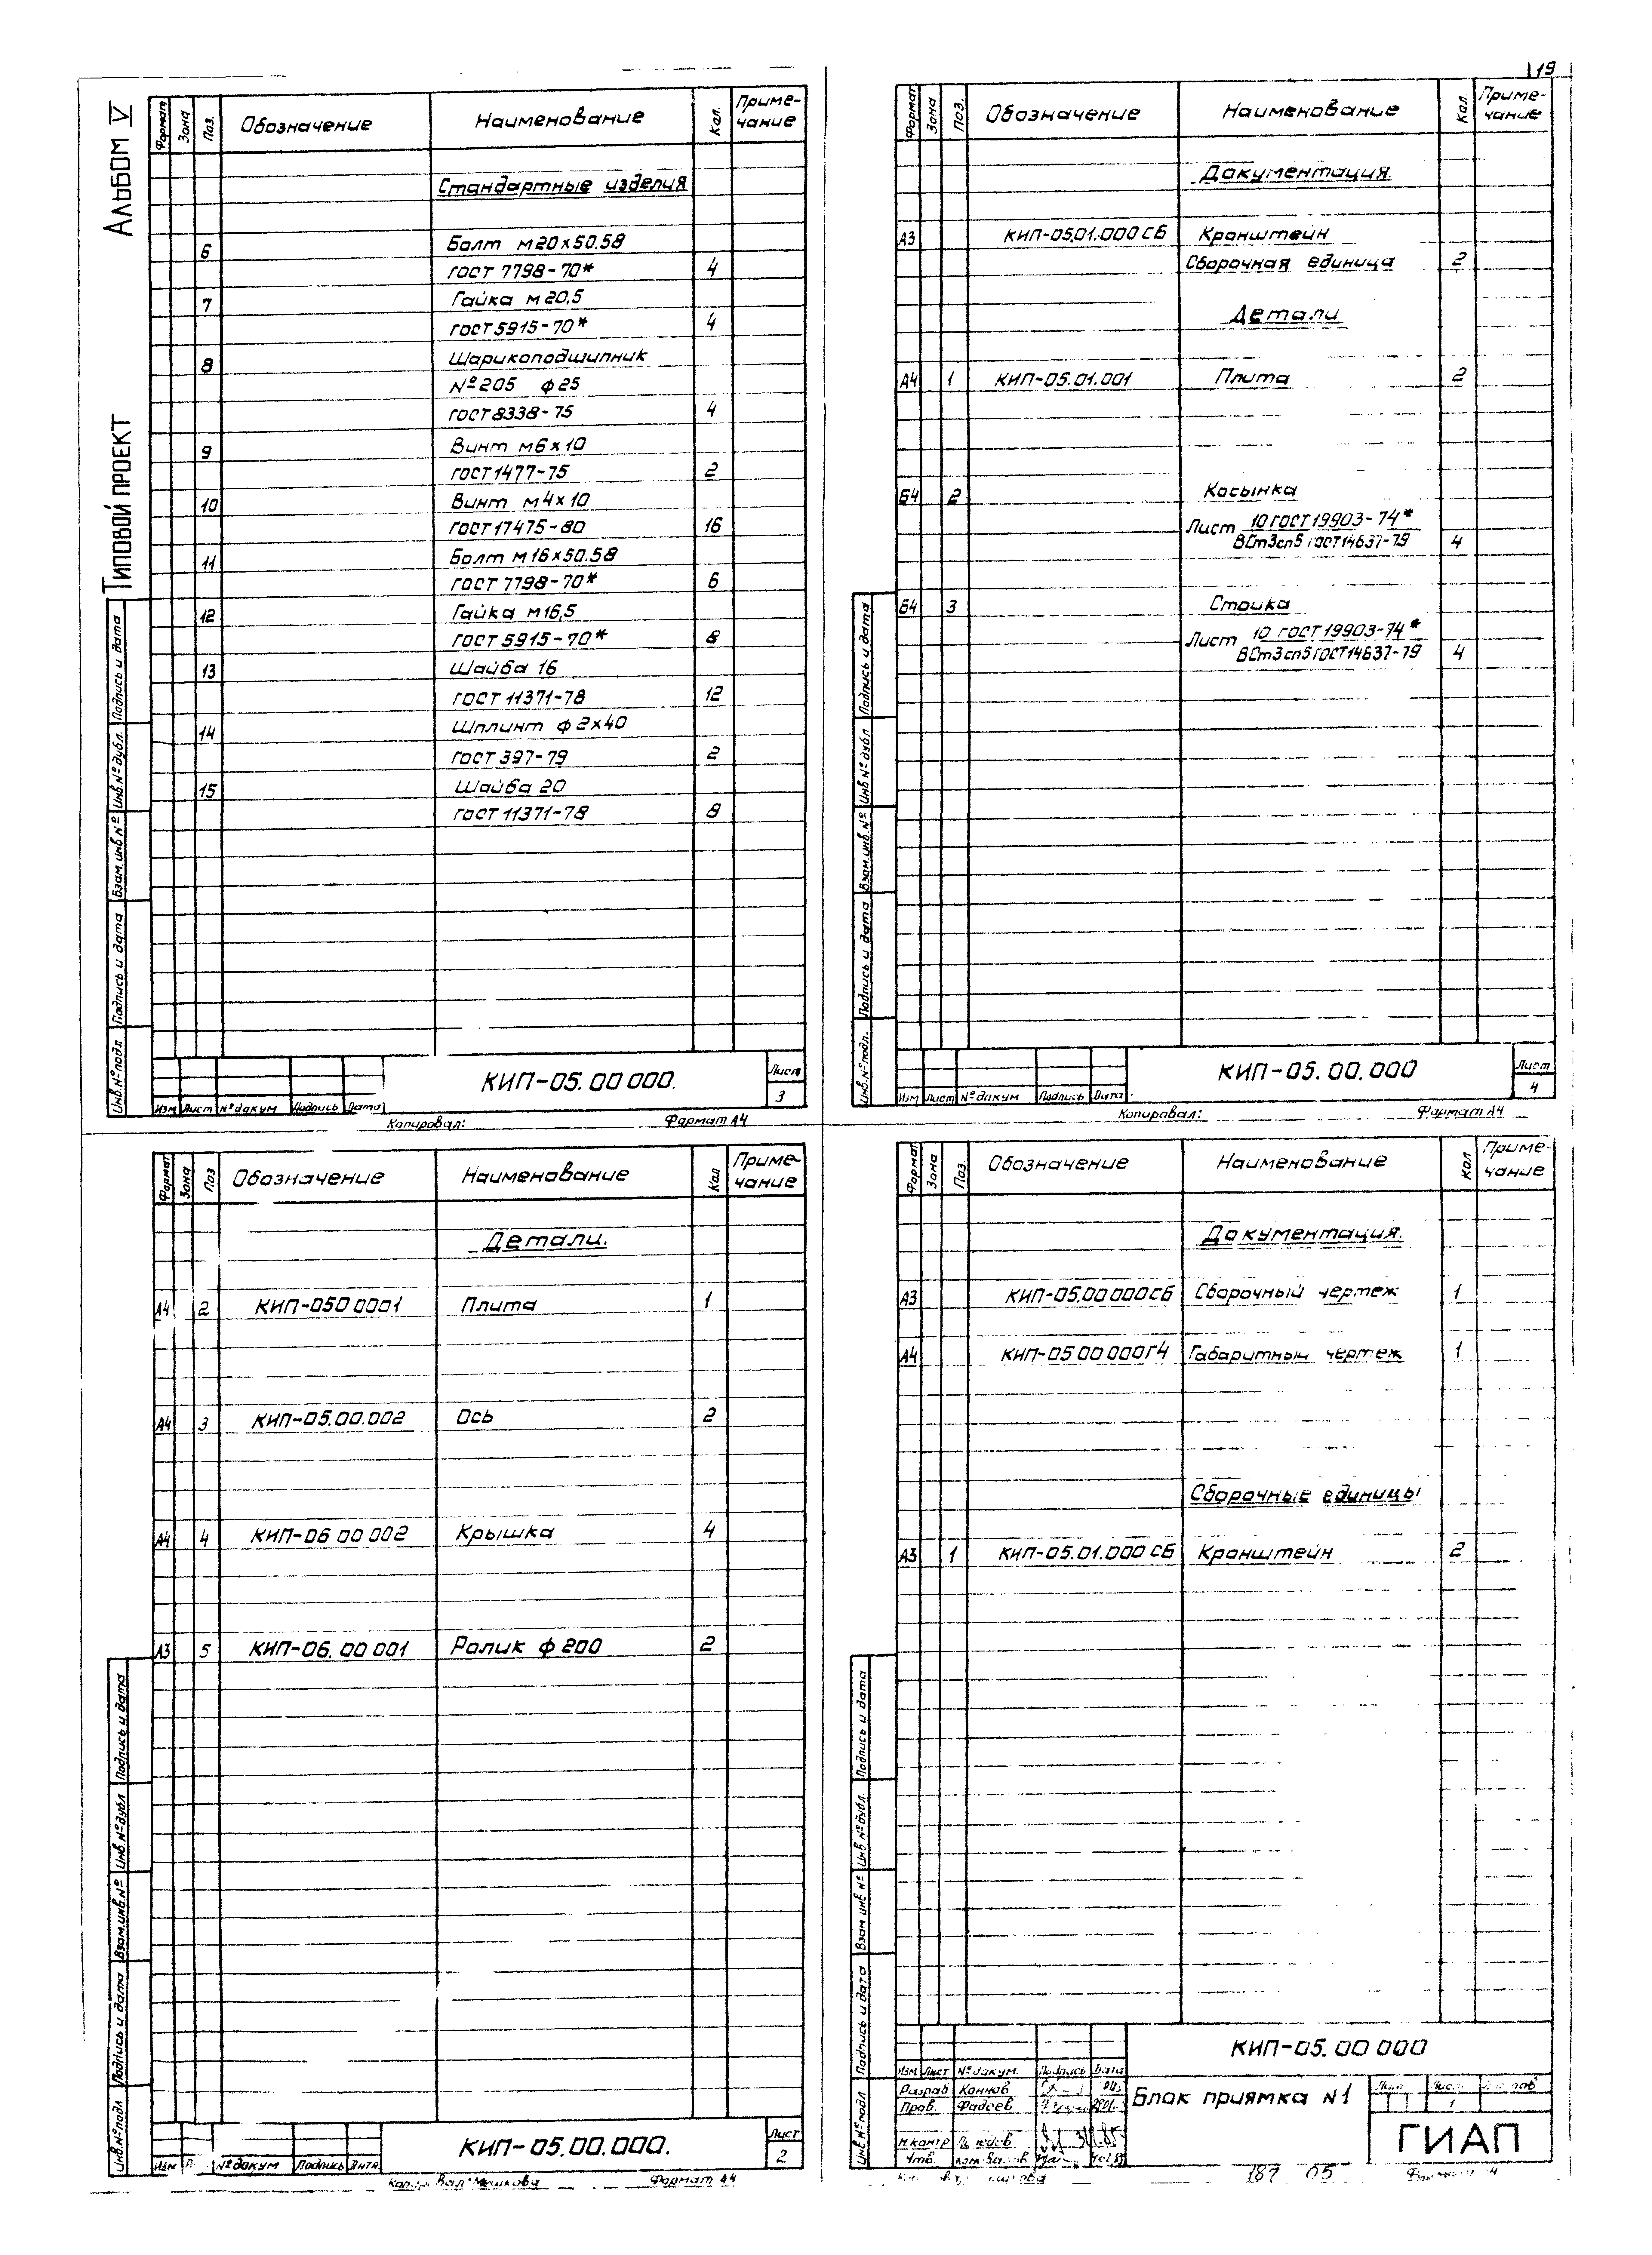 19
Альбом V
Типовой проект
Формат Зона Поз. Обозначение Наименование Кол. Приме-чание
Стандартные изделия
6 Болт М20×50.58
ГОСТ 7798-70* 4
7 Гайка М20,5
ГОСТ 5915-70* 4
8 Шарикоподшипник
№205 ф25
ГОСТ 8338-75 4
9 Винт М6×10
ГОСТ 1477-75 2
10 Винт М4×10
ГОСТ 17475-80 16
11 Болт М16×50.58
ГОСТ 7798-70* 6
12 Гайка М16,5
ГОСТ 5915-70* 8
13 Шайба 16
ГОСТ 11371-78 12
14 Шплинт ф2×40
ГОСТ 397-79 2
15 Шайба 20
ГОСТ 11371-78 8
Инв.№подл Подпись и дата Взам.инв.№ Инв.№дубл. Подпись и дата
КИП-05.00000.
Лист
3
Изм Лист №докум Подпись Дата
Копировал: Формат А4
Формат Зона Поз. Обозначение Наименование Кол. Приме-чание
Документация.
А3 КИП-05.01.000СБ Кронштейн
Сборочная единица 2
Детали
А4 1 КИП-05.01.001 Плита 2
Б4 2 Косынка
Лист 10 ГОСТ 19903-74*
ВСт3сп5 ГОСТ 14637-79 4
Б4 3 Стойка
Лист 10 ГОСТ 19903-74*
ВСт3сп5 ГОСТ 14637-79 4
Инв.№подл. Подпись и дата Взам.инв.№ Инв.№дубл Подпись и дата
КИП-05.00.000
Лист
4
Изм Лист №докум Подпись Дата
Копировал: Формат А4
Формат Зона Поз Обозначение Наименование Кол Приме-чание
Детали.
А4 2 КИП-0500001 Плита 1
А4 3 КИП-05.00.002 Ось 2
А4 4 КИП-0600002 Крышка 4
А3 5 КИП-06.00001 Ролик ф200 2
Инв.№подл Подпись и дата Взам.инв.№ Инв.№дубл Подпись и дата
КИП-05.00.000.
Лист
2
Изм №докум Подпись Дата
Мешкова Формат А4
Формат Зона Поз. Обозначение Наименование Кол Приме-чание
Документация.
А3 КИП-05.00000СБ Сборочный чертеж 1
А4 КИП-05.00000ГЧ Габаритный чертеж 1
Сборочные единицы
А3 1 КИП-05.01.000СБ Кронштейн 2
Инв.№подл Подпись и дата Взам инв № Инв №дубл. Подпись и дата
КИП-05.00000
Изм Лист №докум. Подпись Дата
Разраб Коннов
Пров. Фадеев
Н.контр
Утв.
Блок приямка N1
1
ГИАП
187 05